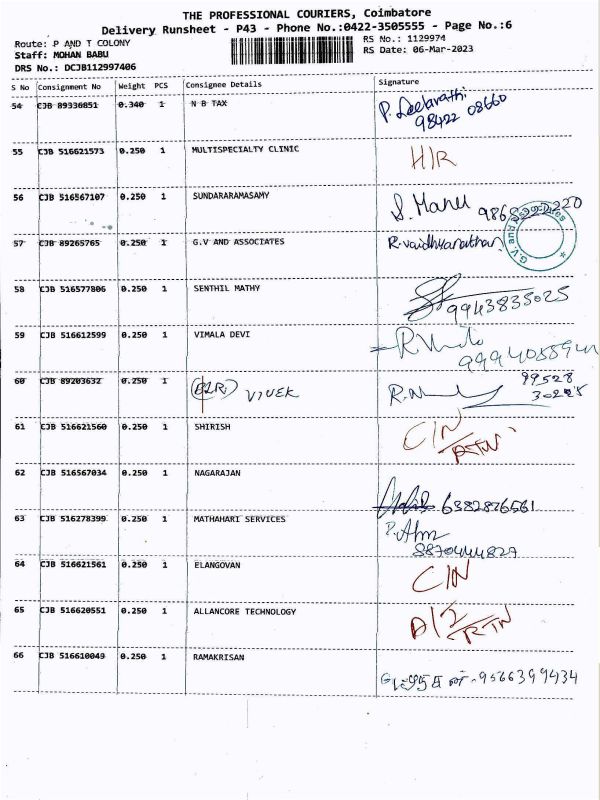 THE PROFESSIONAL COURIERS, Coimbatore
Delivery Runsheet - P43 - Phone No.:0422-3505555 - Page No.:6
Route: P AND T COLONY
RS No.: 1129974
Staff: MOHAN BABU
RS Date: 06-Mar-2023
DRS No.: DCJB112997406
S No Consignment No Weight PCS Consignee Details Signature
54 CJB 89336851 0.340 1 N B TAX P. Leelavathi
98422 08660
55 CJB 516621573 0.250 1 MULTISPECIALTY CLINIC H/R
56 CJB 516567107 0.250 1 SUNDARARAMASAMY
57 CJB 89265765 0.250 1 G.V AND ASSOCIATES R. vaidhyanathan
G.V. and Associates
58 CJB 516577806 0.250 1 SENTHIL MATHY 9943835025
59 CJB 516612599 0.250 1 VIMALA DEVI
60 CJB 89203632 0.250 1 VIVEK 99528
61 CJB 516621560 0.250 1 SHIRISH C/N
RTN
62 CJB 516567034 0.250 1 NAGARAJAN 6382826561
63 CJB 516278399 0.250 1 MATHAHARI SERVICES
8870444827
64 CJB 516621561 0.250 1 ELANGOVAN C/N
65 CJB 516620551 0.250 1 ALLANCORE TECHNOLOGY
RTN
66 CJB 516610049 0.250 1 RAMAKRISAN 9566399434